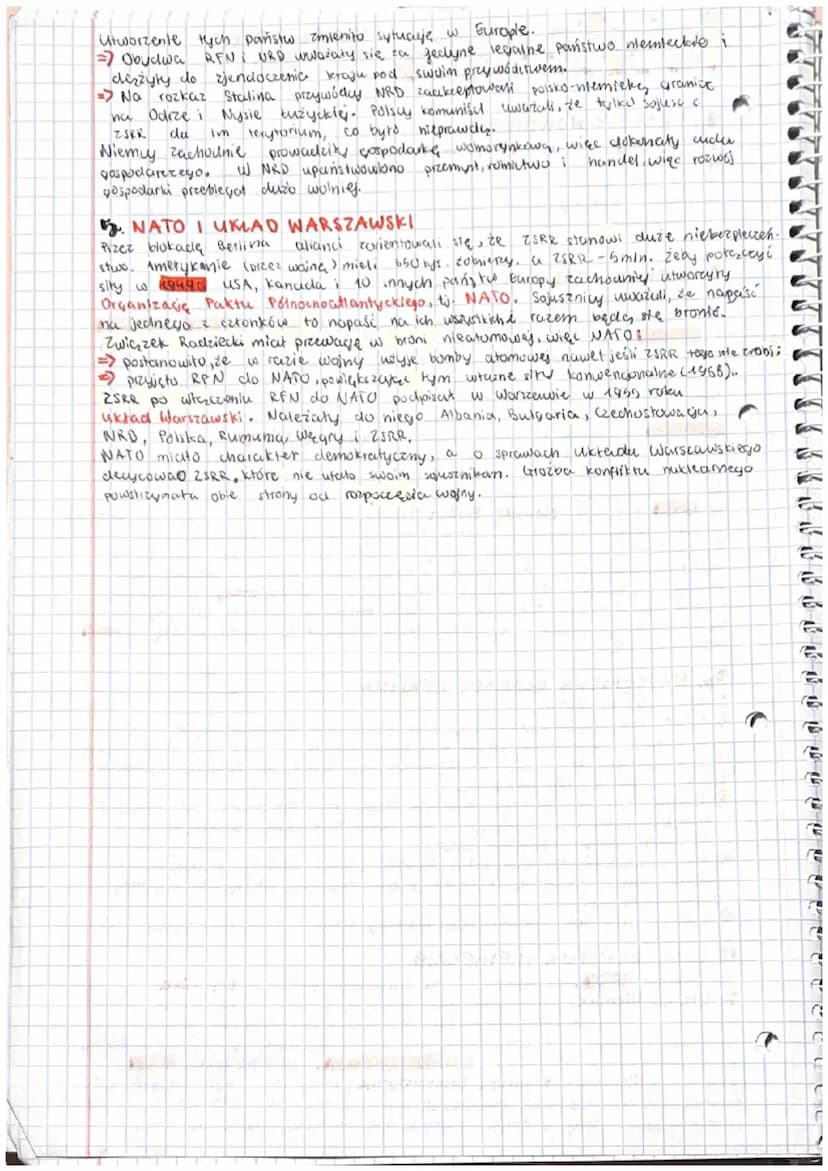 Utworzenie tych państw zmieniło sytuację w Europie.
=> Obydwa RFN i NRD uważały się za jedyne legalne państwo niemieckie i
dążyły do zjendoczenia kraju pod swoim przywództwem.
=> Na rozkaz Stalina przywódcy NRD zaakceptowali polsko-niemiecką granicę
na Odrze i Nysie Łużyckiej. Polscy komuniści uważali, że tylko sojusz z
ZSRR da im terytorium, co było nieprawdą.
Niemcy Zachodnie prowadziły gospodarkę wolnorynkową, więc dokonały cudu
gospodarczego. W NRD upaństwowiono przemysł, rolnictwo i handel, więc rozwój
gospodarki przebiegał dużo wolniej.
5. NATO I UKŁAD WARSZAWSKI
Przez blokadę Berlina alianci zorientowali się, że ZSRR stanowi duże niebezpieczeń-
stwo. Amerykanie (przez wojnę) mieli 650 tys. żołnierzy, a ZSRR - 5 mln. Żeby połączyć
siły w 1949r. USA, Kanada i 10 innych państw Europy zachodniej utworzyły
Organizację Paktu Północnoatlantyckiego, tj. NATO. Sojusznicy uważali, że napaść
na jednego z członków to napaść na ich wszystkich i razem będą się bronić.
Związek Radziecki miał przewagę w broni nieatomowej, więc NATO:
=> postanowiło, że w razie wojny użyje bomby atomowej nawet jeśli ZSRR tego nie zrobi;
=> przyjęto RFN do NATO, powiększając tym własne siły konwencjonalne (1955).
ZSRR po włączeniu RFN do NATO podpisał w Warszawie w 1955 roku
Układ Warszawski. Należały do niego Albania, Bułgaria, Czechosłowacja,
NRD, Polska, Rumunia, Węgry i ZSRR.
NATO miało charakter demokratyczny, a o sprawach Układu Warszawskiego
decydował ZSRR, które nie ufało swoim sojusznikom. Groźba konfliktu nuklearnego
powstrzymała obie strony od rozpoczęcia wojny.